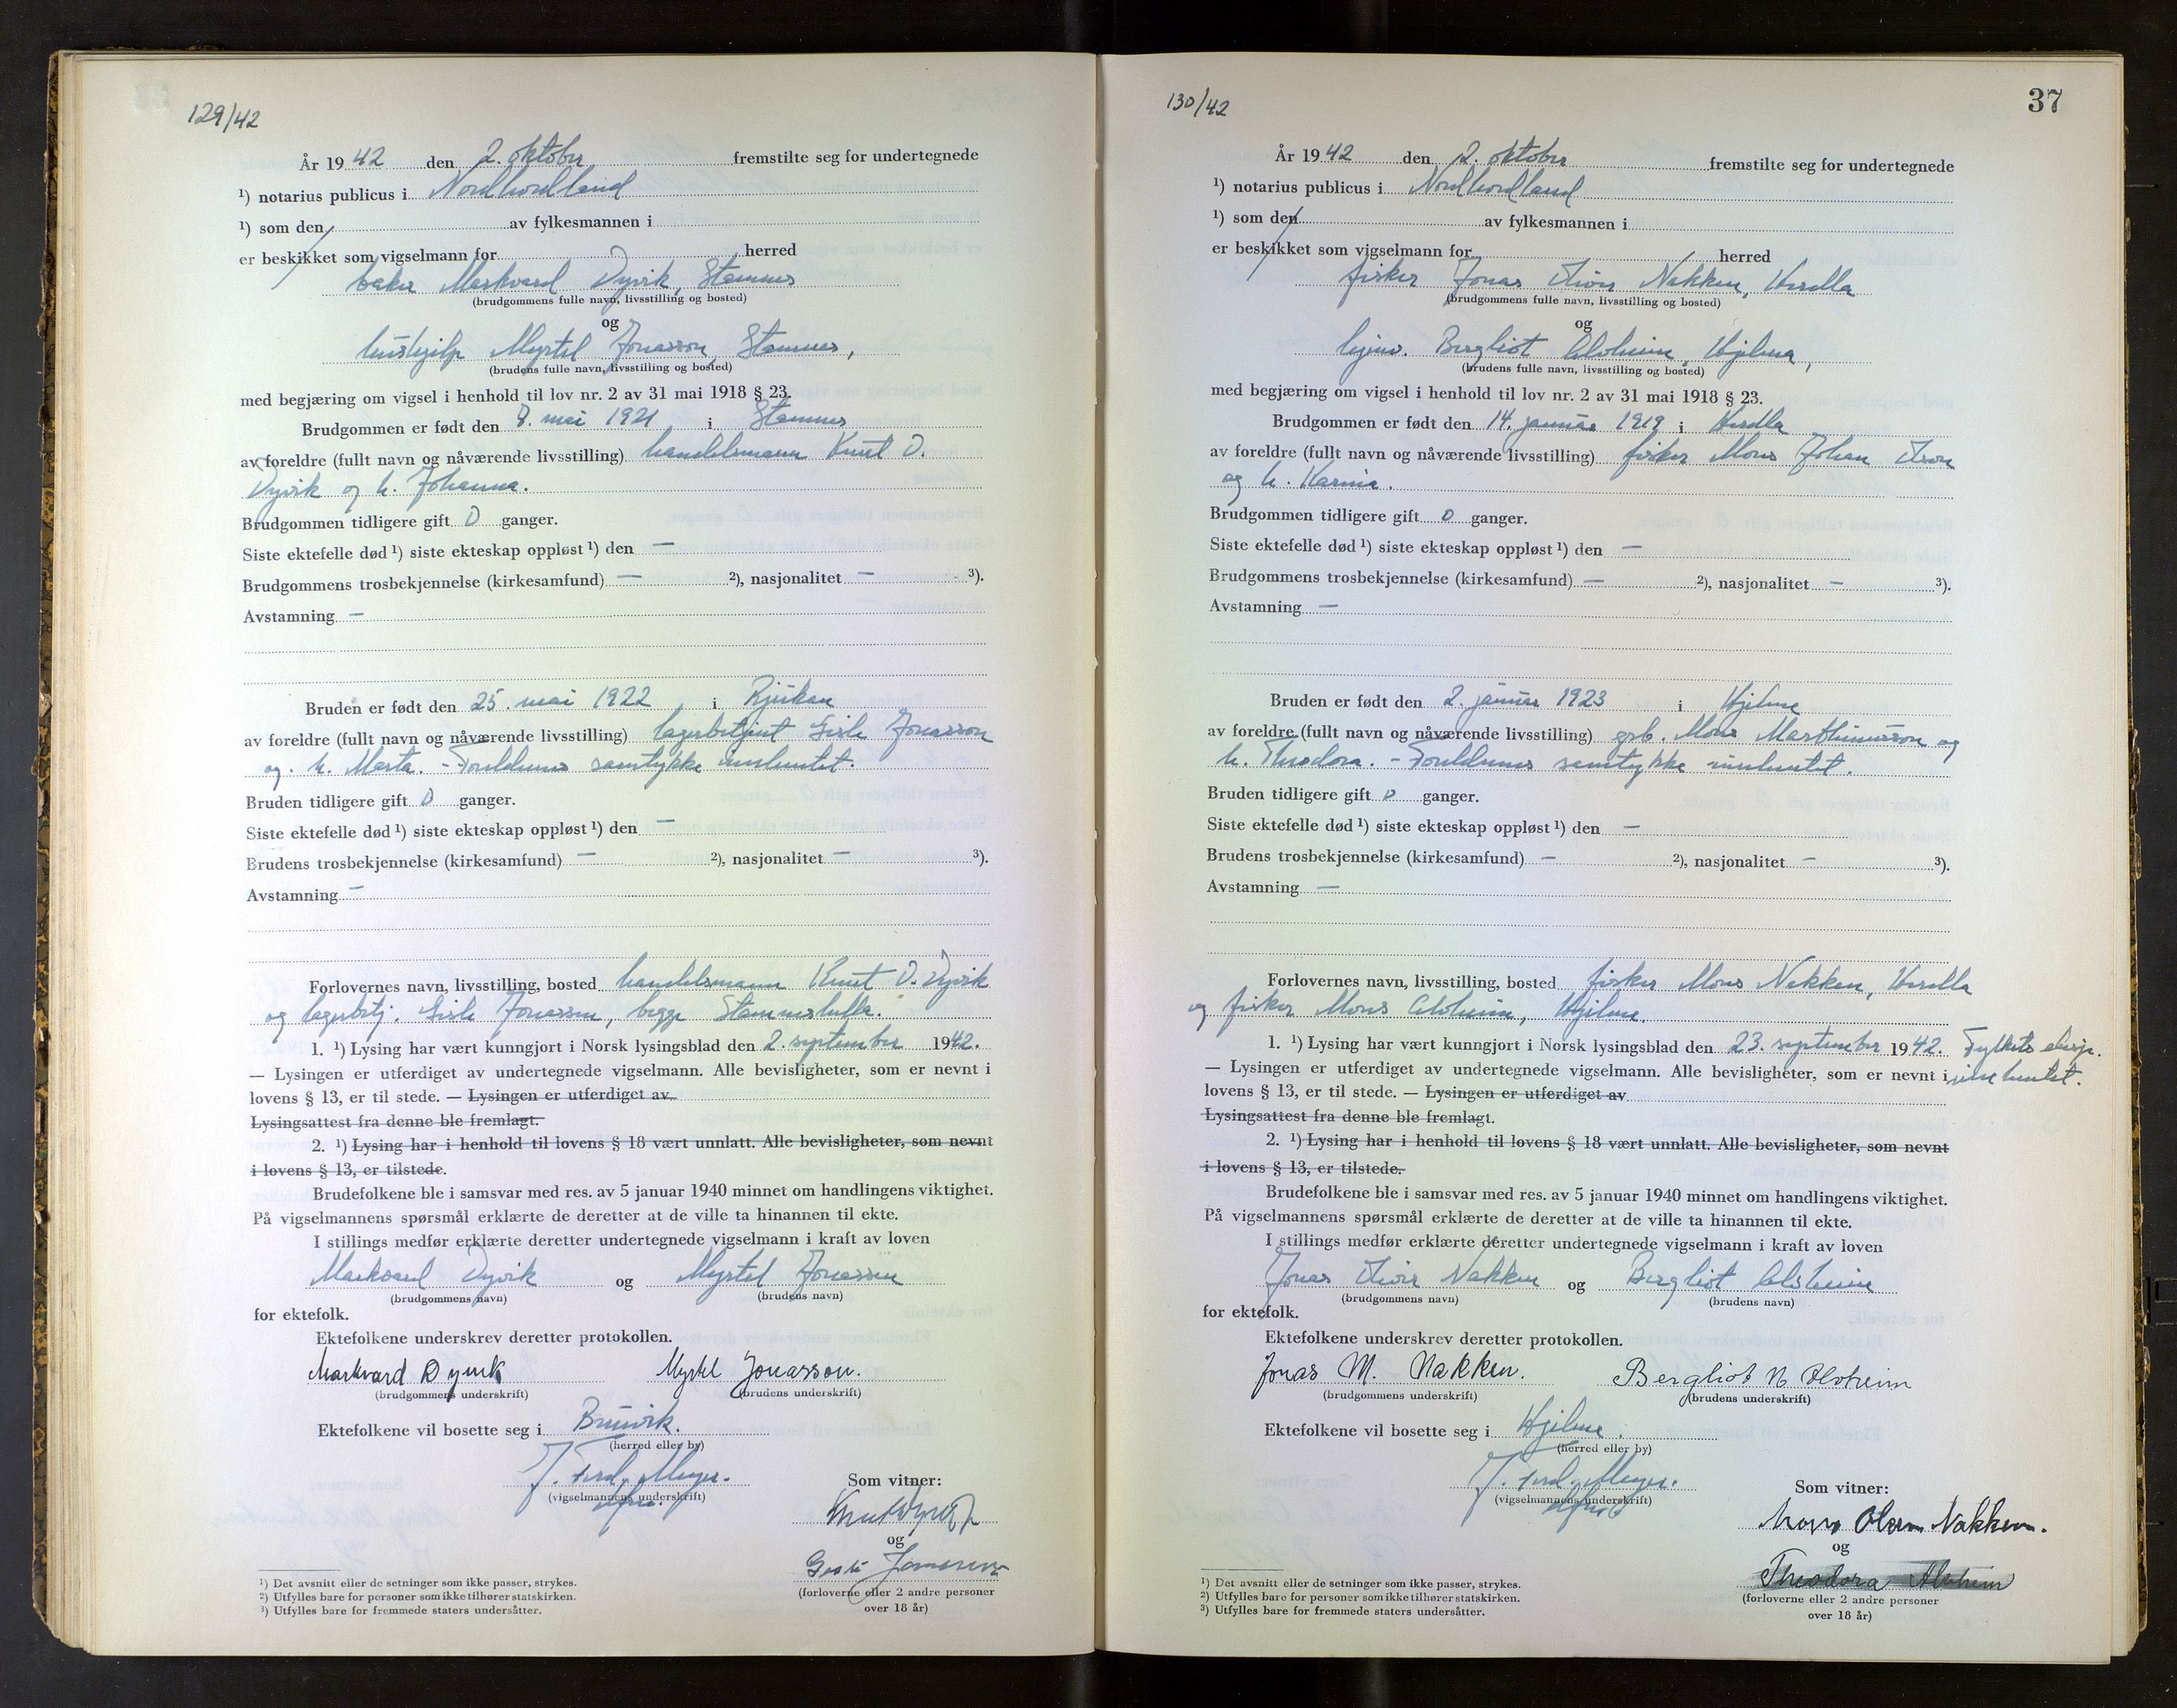 129/42
År 19 42 den 2. oktober fremstilte seg for undertegnede
¹) notarius publicus i Nordhordland
¹) som den av fylkesmannen i
er beskikket som vigselmann for herred
baker Markvard Dyvik, Stamnes
(brudgommens fulle navn, livsstilling og bosted)
og
hushjelp Myrtel Jonasson, Stamnes,
(brudens fulle navn, livsstilling og bosted)
med begjæring om vigsel i henhold til lov nr. 2 av 31 mai 1918 § 23.
Brudgommen er født den 8. mai 1921 i Stamnes
av foreldre (fullt navn og nåværende livsstilling) handelsmann Knut O.
Dyvik og h. Johanna.
Brudgommen tidligere gift 0 ganger.
Siste ektefelle død ¹) siste ekteskap oppløst ¹) den —
Brudgommens trosbekjennelse (kirkesamfund) — ²), nasjonalitet — ³).
Avstamning —
Bruden er født den 25. mai 1922 i Rjukan
av foreldre (fullt navn og nåværende livsstilling) lagerbetjent Gisle Jonasson
og h. Marta. - Foreldrenes samtykke innhentet.
Bruden tidligere gift 0 ganger.
Siste ektefelle død ¹) siste ekteskap oppløst ¹) den —
Brudens trosbekjennelse (kirkesamfund) — ²), nasjonalitet — ³).
Avstamning —
Forlovernes navn, livsstilling, bosted handelsmann Knut O. Dyvik
og lagerbetj. Gisle Jonasson, begge Stamneshella.
1. ¹) Lysing har vært kunngjort i Norsk lysingsblad den 2. september 1942.
— Lysingen er utferdiget av undertegnede vigselmann. Alle bevisligheter, som er nevnt i
lovens § 13, er til stede. — Lysingen er utferdiget av
Lysingsattest fra denne ble fremlagt.
2. ¹) Lysing har i henhold til lovens § 18 vært unnlatt. Alle bevisligheter, som nevnt
i lovens § 13, er tilstede.
Brudefolkene ble i samsvar med res. av 5 januar 1940 minnet om handlingens viktighet.
På vigselmannens spørsmål erklærte de deretter at de ville ta hinannen til ekte.
I stillings medfør erklærte deretter undertegnede vigselmann i kraft av loven
Markvard Dyvik og Myrtel Jonasson
(brudgommens navn) (brudens navn)
for ektefolk.
Ektefolkene underskrev deretter protokollen.
Markvard Dyvik Myrtel Jonasson.
(brudgommens underskrift) (brudens underskrift)
Ektefolkene vil bosette seg i Bruvik.
(herred eller by)
J. Ferd. Meyer.
(vigselmannens underskrift)
Som vitner:
Knut Dyvik
og
Gisle Jonasson
(forloverne eller 2 andre personer
over 18 år)
¹) Det avsnitt eller de setninger som ikke passer, strykes.
²) Utfylles bare for personer som ikke tilhører statskirken.
³) Utfylles bare for fremmede staters undersåtter.
130/42
37
År 19 42 den 2. oktober fremstilte seg for undertegnede
¹) notarius publicus i Nordhordland
¹) som den av fylkesmannen i
er beskikket som vigselmann for herred
fisker Jonas Iver Nakken, Herdla
(brudgommens fulle navn, livsstilling og bosted)
og
hjemv. Bergliot Alsheim, Hjelme,
(brudens fulle navn, livsstilling og bosted)
med begjæring om vigsel i henhold til lov nr. 2 av 31 mai 1918 § 23.
Brudgommen er født den 14. januar 1919 i Herdla
av foreldre (fullt navn og nåværende livsstilling) fisker Mons Johan
og h. Karina.
Brudgommen tidligere gift 0 ganger.
Siste ektefelle død ¹) siste ekteskap oppløst ¹) den —
Brudgommens trosbekjennelse (kirkesamfund) — ²), nasjonalitet — ³).
Avstamning —
Bruden er født den 2. januar 1923 i Hjelme
av foreldre (fullt navn og nåværende livsstilling) grb. Mons Marthinusson og
h. Theodora. - Foreldrenes samtykke innhentet.
Bruden tidligere gift 0 ganger.
Siste ektefelle død ¹) siste ekteskap oppløst ¹) den —
Brudens trosbekjennelse (kirkesamfund) — ²), nasjonalitet — ³).
Avstamning —
Forlovernes navn, livsstilling, bosted fisker Mons Nakken, Herdla
og fisker Mons Alsheim, Hjelme.
1. ¹) Lysing har vært kunngjort i Norsk lysingsblad den 23. september 1942. Fylkets disp.
— Lysingen er utferdiget av undertegnede vigselmann. Alle bevisligheter, som er nevnt i innhentet.
lovens § 13, er til stede. — Lysingen er utferdiget av
Lysingsattest fra denne ble fremlagt.
2. ¹) Lysing har i henhold til lovens § 18 vært unnlatt. Alle bevisligheter, som nevnt
i lovens § 13, er tilstede.
Brudefolkene ble i samsvar med res. av 5 januar 1940 minnet om handlingens viktighet.
På vigselmannens spørsmål erklærte de deretter at de ville ta hinannen til ekte.
I stillings medfør erklærte deretter undertegnede vigselmann i kraft av loven
Jonas Iver Nakken og Bergliot Alsheim
(brudgommens navn) (brudens navn)
for ektefolk.
Ektefolkene underskrev deretter protokollen.
Jonas M. Nakken. Bergliot M Alsheim
(brudgommens underskrift) (brudens underskrift)
Ektefolkene vil bosette seg i Hjelme.
(herred eller by)
J. Ferd. Meyer.
(vigselmannens underskrift)
Som vitner:
Mons Olsen Nakken.
og
Theodora Alsheim
(forloverne eller 2 andre personer
over 18 år)
¹) Det avsnitt eller de setninger som ikke passer, strykes.
²) Utfylles bare for personer som ikke tilhører statskirken.
³) Utfylles bare for fremmede staters undersåtter.